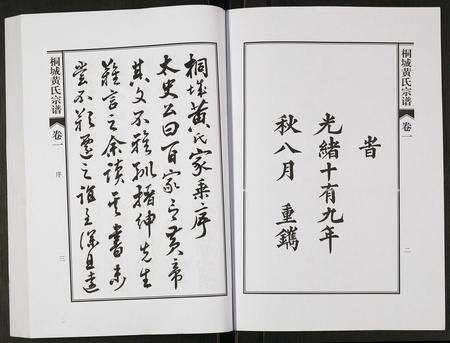 桐城黄氏宗谱
卷一
二
旹
光緒十有九年
秋八月 重鐫
桐城黄氏家乘序
太史公曰百家言黄帝
其文不雅馴搢紳先生
難言之余讀其書未
嘗不歎遷之識之深且遠
桐城黄氏宗谱
卷一
序
三